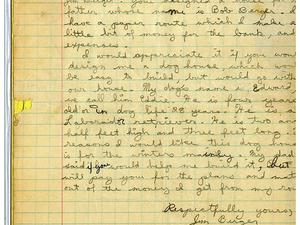 father whose name is Bob Berger. I
have a paper route which I make a
little bit of money for the bank, and
expenses.
I would appreciate it if you would
design me a dog house, which would
be easy to build, but would go with
our house. My dog's name is Edward,
we call him Eddie. He is four years
old or in dog life 28 years. He is a
Labrador retriever. He is two and
half feet high and three feet long.
reasons I would like this dog house
is for the winters mainly. My dad
said if you would help me build it. But
will pay you for the plans and mat
out of the money I get from my rou
Respectfully yours,
Jim Berger